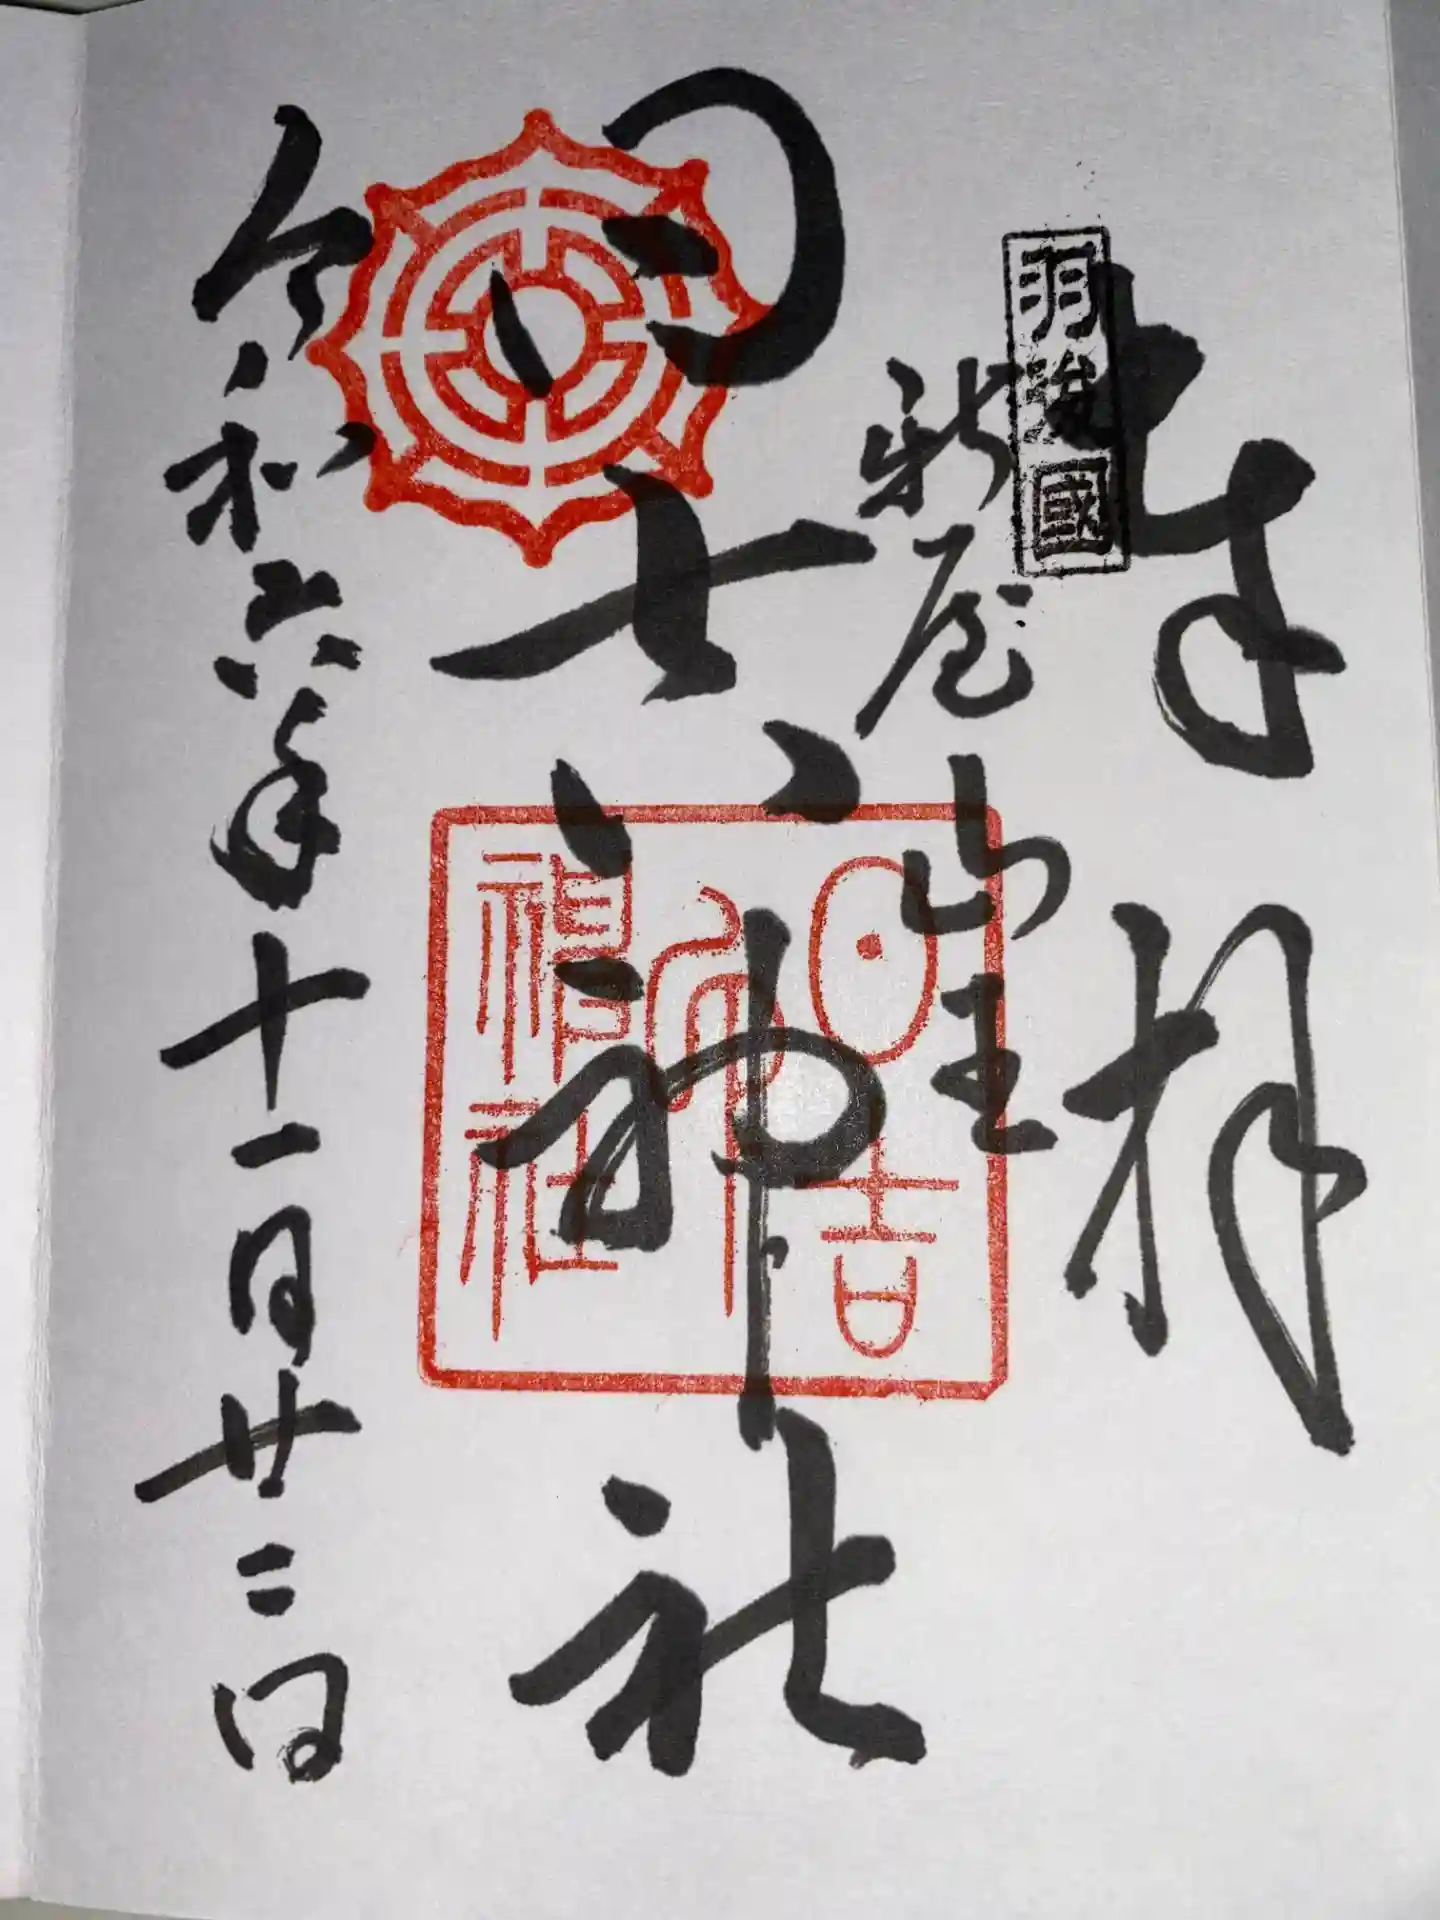 奉拝
羽後國
新屋山王
日吉神社
令和六年十一月廿二日
日吉